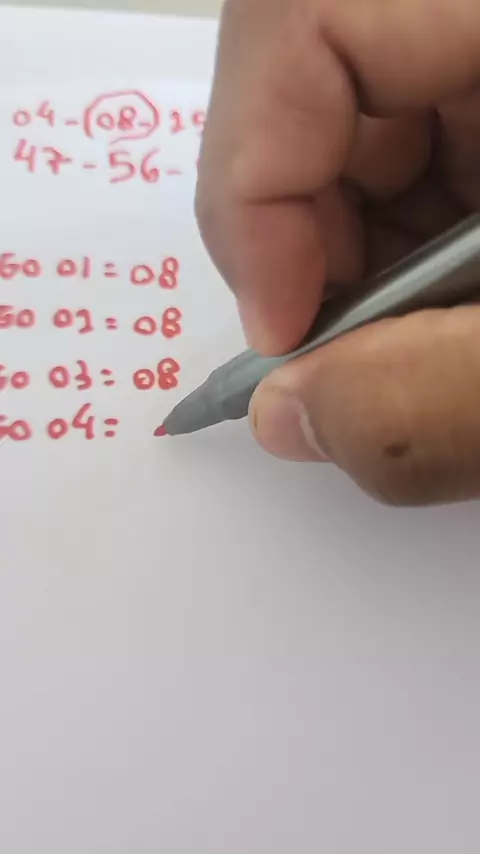 04-(08-)
47-56-
GO 01=08
GO 02=08
GO 03=08
GO 04=